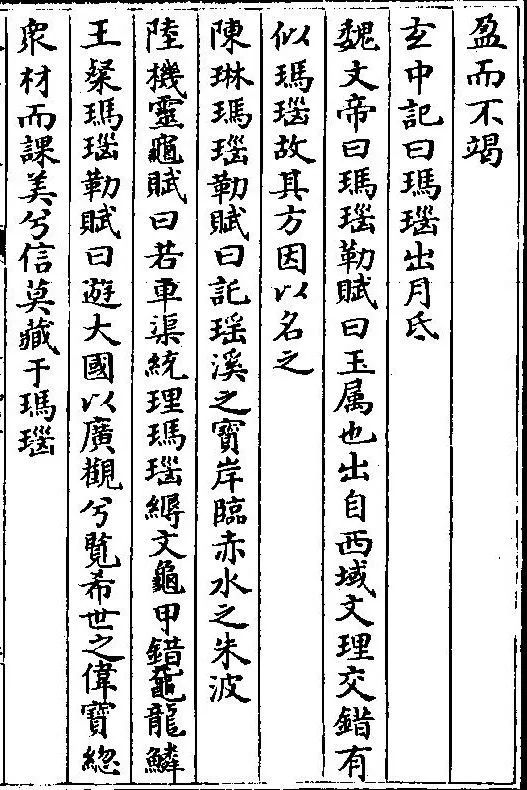 盈而不竭
玄中記曰瑪瑙出月氐
魏文帝曰瑪瑙勒賦曰玉属也出自西域文理交錯有
似瑪瑙故其方因以名之
陳琳瑪瑙勒賦曰託瑶溪之寳岸臨赤水之朱波
陸機靈龜賦曰若車渠統理瑪瑙縟文龜甲錯黿龍鱗
王粲瑪瑙勒賦曰遊大國以廣觀兮覧希世之偉寳緫
衆材而課美兮信莫藏于瑪瑙